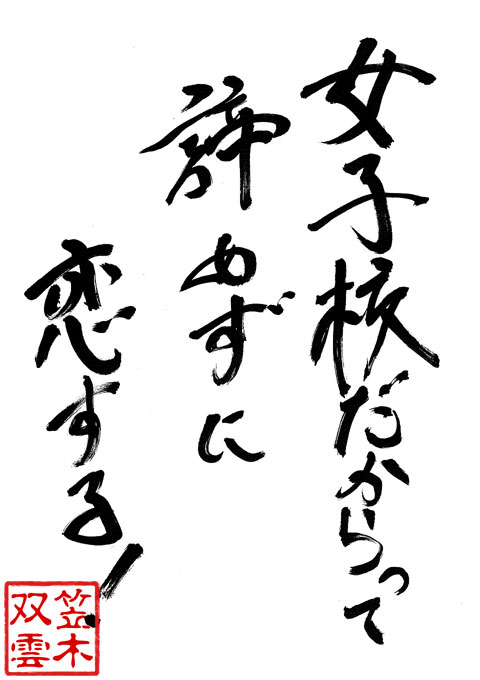 女子校だからって
諦めずに
恋する!
笠木
双雲